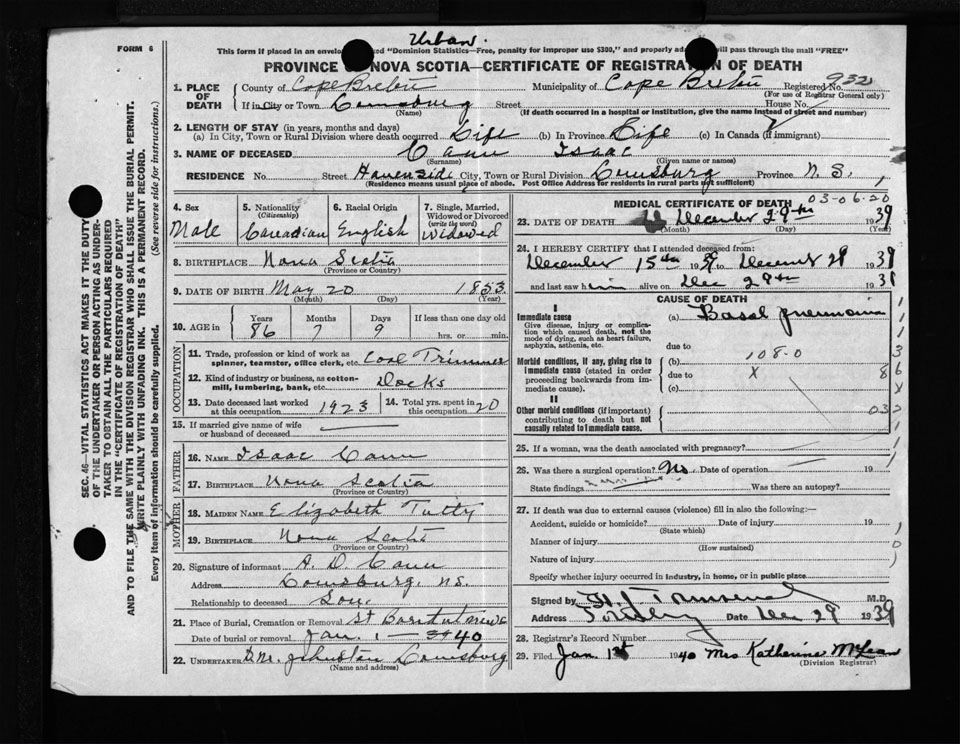 Urban.
FORM 6
This form if placed in an envelo ked "Dominion Statistics—Free, penalty for improper use $300," and properly ad will pass through the mail "FREE"
PROVINCE NOVA SCOTIA—CERTIFICATE OF REGISTRATION OF DEATH
1. PLACE OF DEATH
County of Cape Breton Municipality of Cape Breton Registered No. 932
(For use of Registrar General only)
If in City or Town Louisburg Street House No.
(Name) (If death occurred in a hospital or institution, give the name instead of street and number)
2. LENGTH OF STAY (in years, months and days)
(a) In City, Town or Rural Division where death occurred Life (b) In Province Life (c) In Canada (if immigrant)
3. NAME OF DECEASED Cann Isaac
(Surname) (Given name or names)
RESIDENCE No. Street Havenside City, Town or Rural Division Louisburg Province N. S.
(Residence means usual place of abode. Post Office Address for residents in rural parts not sufficient)
4. Sex Male
5. Nationality (Citizenship) Canadian
6. Racial Origin English
7. Single, Married, Widowed or Divorced (write the word) Widowed
8. BIRTHPLACE Nova Scotia
(Province or Country)
9. DATE OF BIRTH May 20 1853
(Month) (Day) (Year)
10. AGE in Years Months Days If less than one day old
86 7 9 hrs. or min.
OCCUPATION
11. Trade, profession or kind of work as spinner, teamster, office clerk, etc. Coal Trimmer
12. Kind of industry or business, as cotton-mill, lumbering, bank, etc. Docks
13. Date deceased last worked at this occupation 1923
14. Total yrs. spent in this occupation 20
15. If married give name of wife or husband of deceased
FATHER
16. NAME Isaac Cann
17. BIRTHPLACE Nova Scotia
(Province or Country)
MOTHER
18. MAIDEN NAME Elizabeth Tutty
19. BIRTHPLACE Nova Scotia
(Province or Country)
20. Signature of informant A. D. Cann
Address Louisburg, N.S.
Relationship to deceased Son.
21. Place of Burial, Cremation or Removal St Bartholomews
Date of burial or removal Jan. 1 — 1940
22. UNDERTAKER D.M. Johnston Louisburg
(Name and address)
MEDICAL CERTIFICATE OF DEATH
03-06-20
23. DATE OF DEATH December 29th 1939
(Month) (Day) (Year)
24. I HEREBY CERTIFY that I attended deceased from:
December 15th 1939 to December 29 1939
and last saw him alive on Dec 29th 1939
CAUSE OF DEATH
I
Immediate cause
Give disease, injury or complication which caused death, not the mode of dying, such as heart failure, asphyxia, asthenia, etc.
(a) Basal pneumonia
due to
Morbid conditions, if any, giving rise to immediate cause (stated in order proceeding backwards from immediate cause).
(b) 108-0
due to X
(c)
II
Other morbid conditions (if important) contributing to death but not causally related to immediate cause.
25. If a woman, was the death associated with pregnancy?
26. Was there a surgical operation? No. Date of operation 19
State findings Was there an autopsy?
27. If death was due to external causes (violence) fill in also the following:—
Accident, suicide or homicide? Date of injury 19
(State which)
Manner of injury
(How sustained)
Nature of injury
Specify whether injury occurred in industry, in home, or in public place
Signed by M.D.
Address Date Dec 29 1939
28. Registrar's Record Number
29. Filed Jan. 1st 1940 Mrs Katherine McLean
(Division Registrar)
SEC. 46—VITAL STATISTICS ACT MAKES IT THE DUTY
OF THE UNDERTAKER OR PERSON ACTING AS UNDER-
TAKER TO OBTAIN ALL THE PARTICULARS REQUIRED
IN THE "CERTIFICATE OF REGISTRATION OF DEATH"
AND TO FILE THE SAME WITH THE DIVISION REGISTRAR WHO SHALL ISSUE THE BURIAL PERMIT.
WRITE PLAINLY WITH UNFADING INK. THIS IS A PERMANENT RECORD.
Every item of information should be carefully supplied. (See reverse side for instructions.)